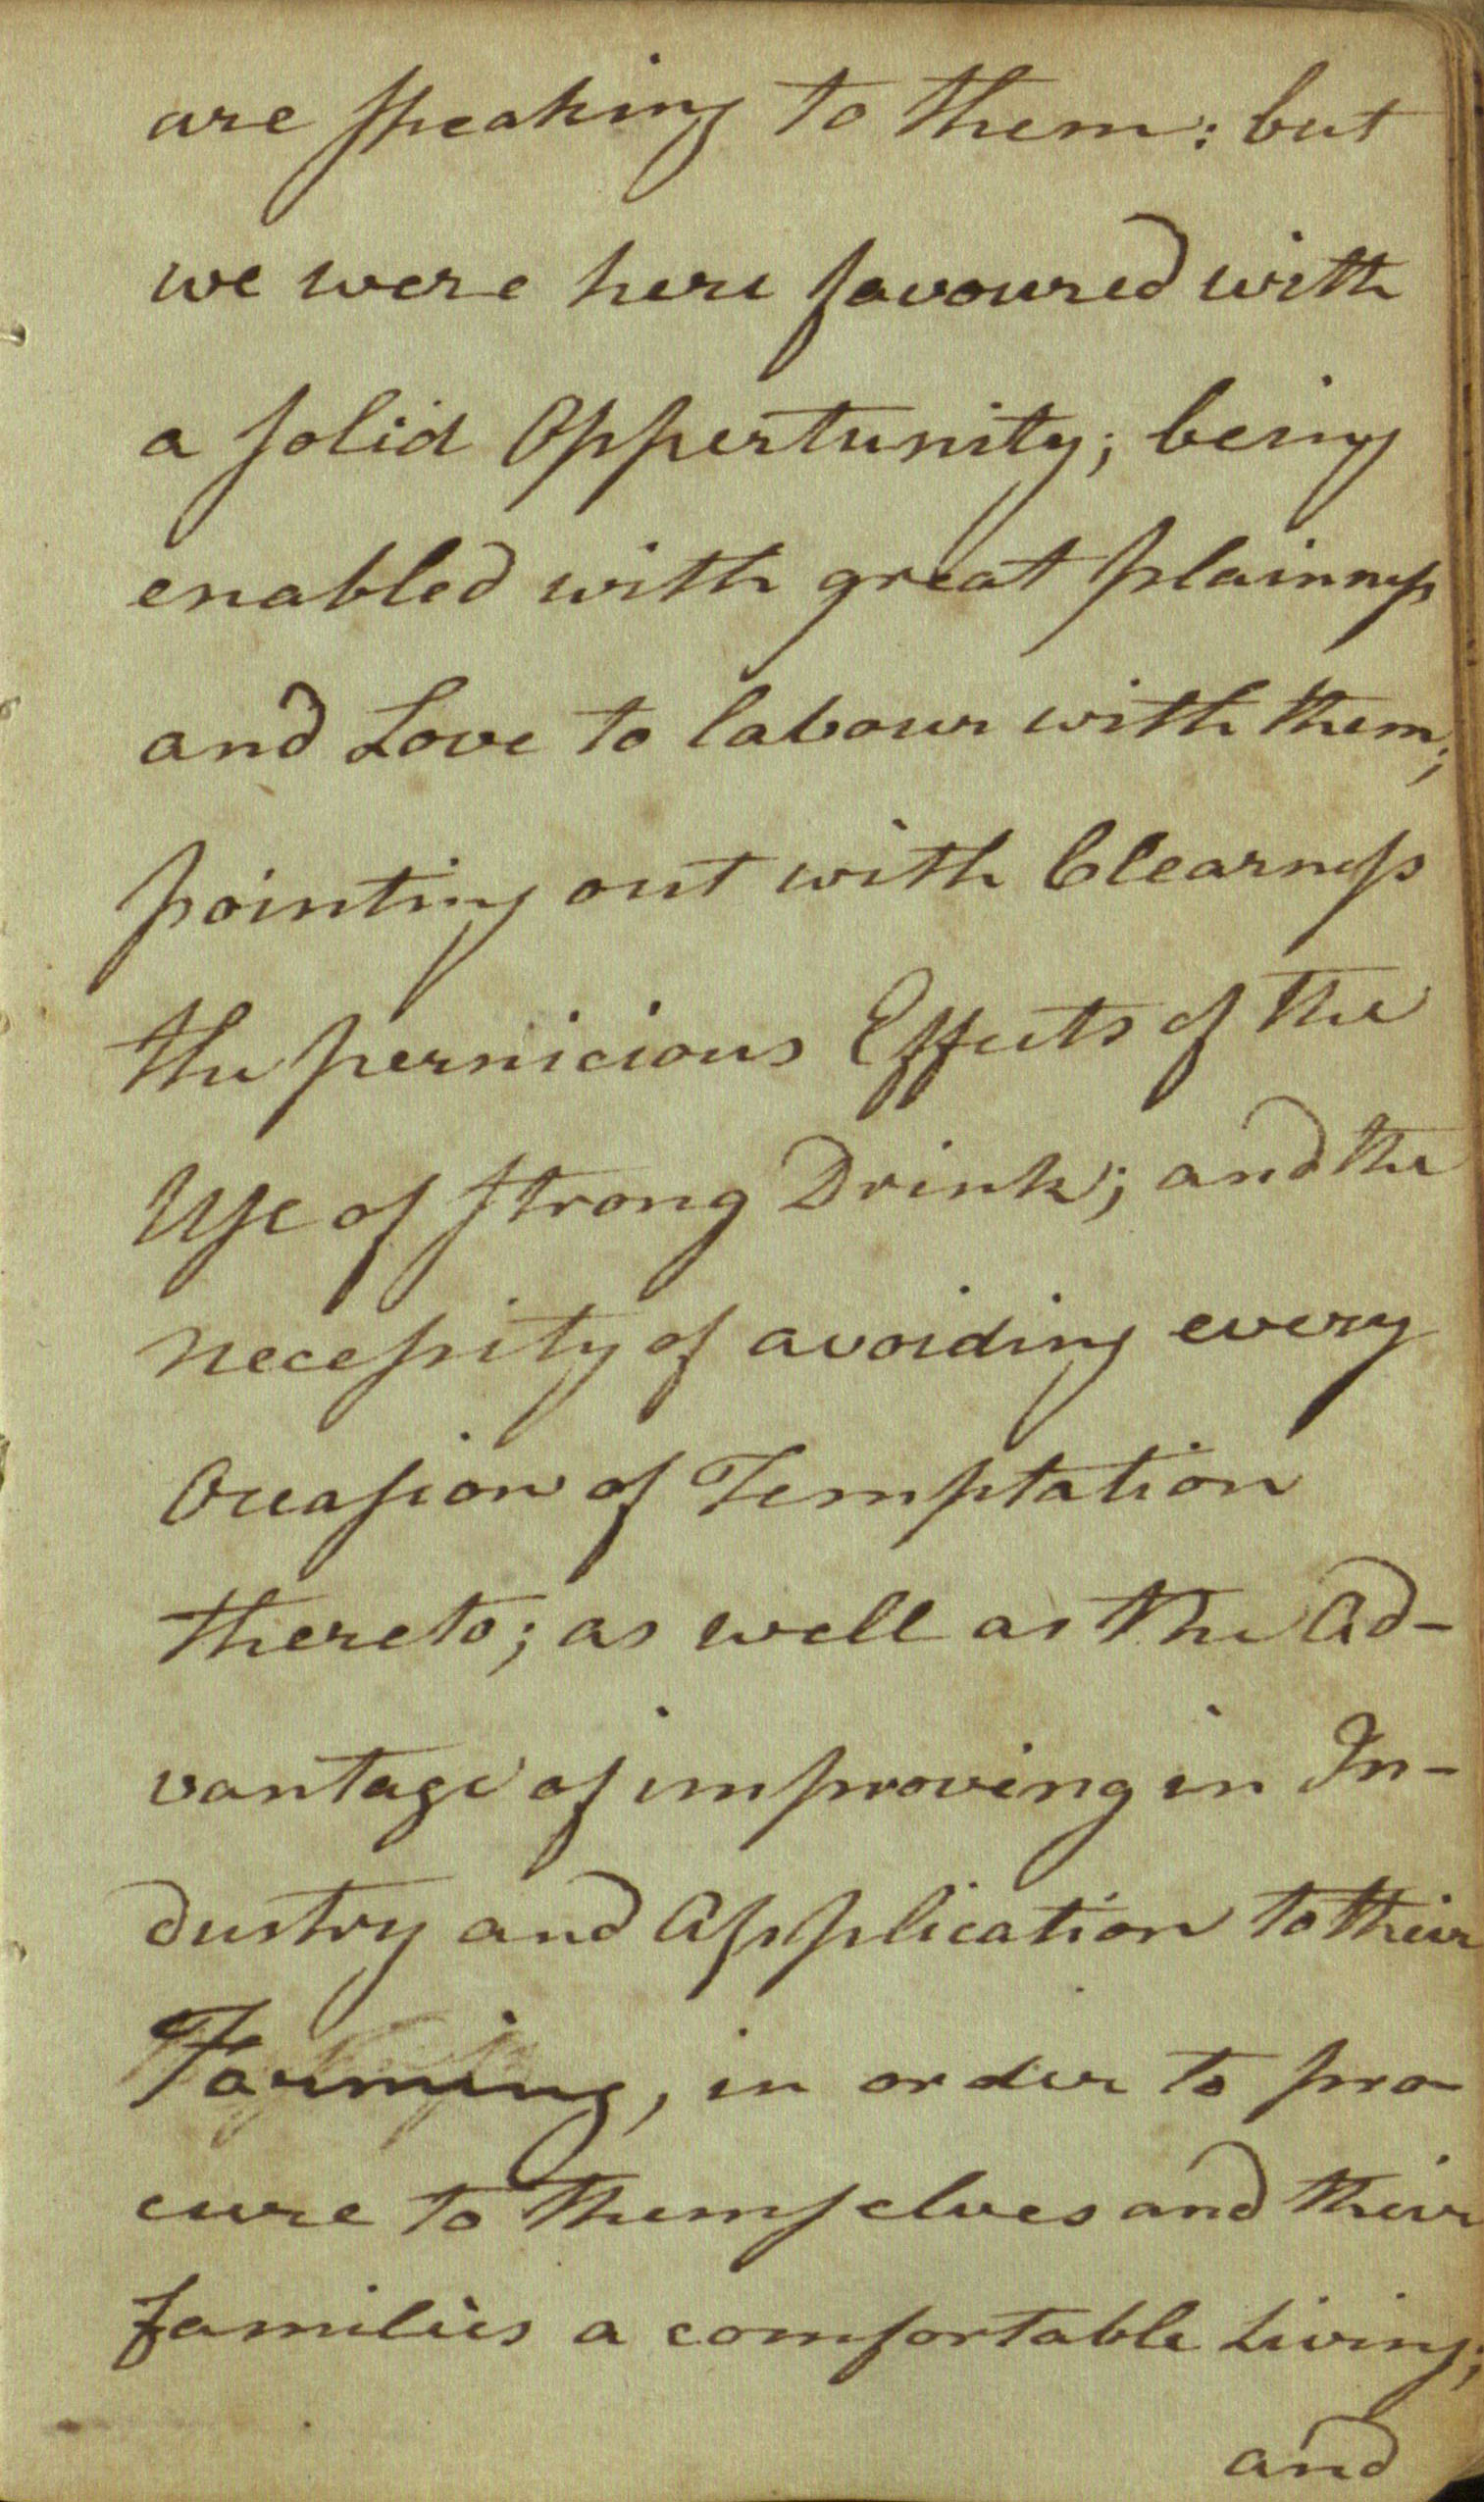 are speaking to them: but
we were here favoured with
a solid Oppertunity; being
enabled with great plainness
and Love to labour with them;
pointing out with Clearness
the pernicious Effects of the
Use of strong Drink; and the
necessity of avoiding every
Occasion of Temptation
thereto; as well as the Ad-
vantage of improving in In-
dustry and Application to their
Farming, in order to pro
cure to themselves and their
families a comfortable Living;
and